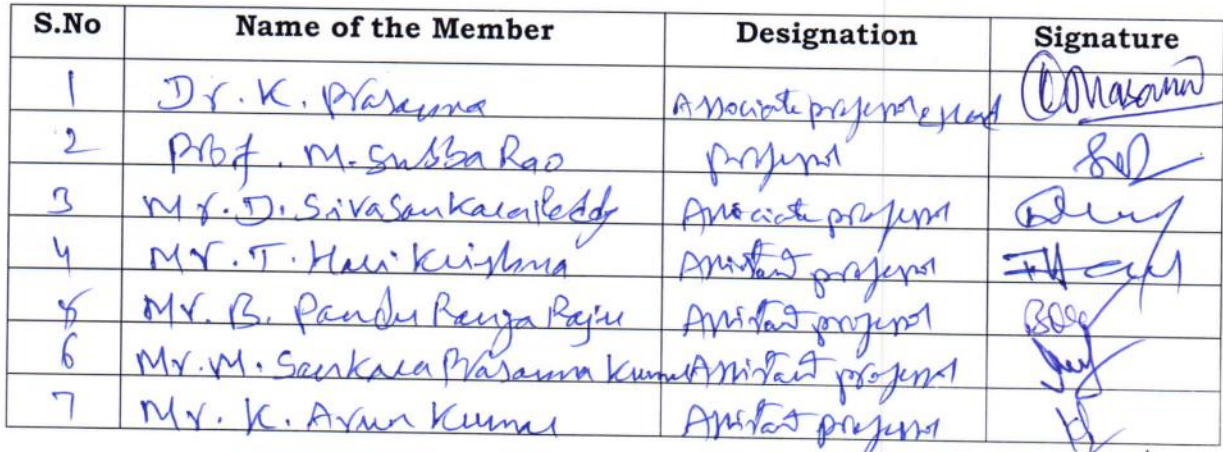 S.No Name of the Member Designation Signature
1 Dr. K. Prasanna Associate professor & Head
2 Prof. M. Subba Rao professor
3 Mr. D. Sivasankara Reddy Associate professor
4 Mr. T. Hari Krishna Assistant professor
5 Mr. B. Pandu Ranga Raju Assistant professor
6 Mr. M. Sankara Prasanna Kumar Assistant professor
7 Mr. K. Arun Kumar Assistant professor